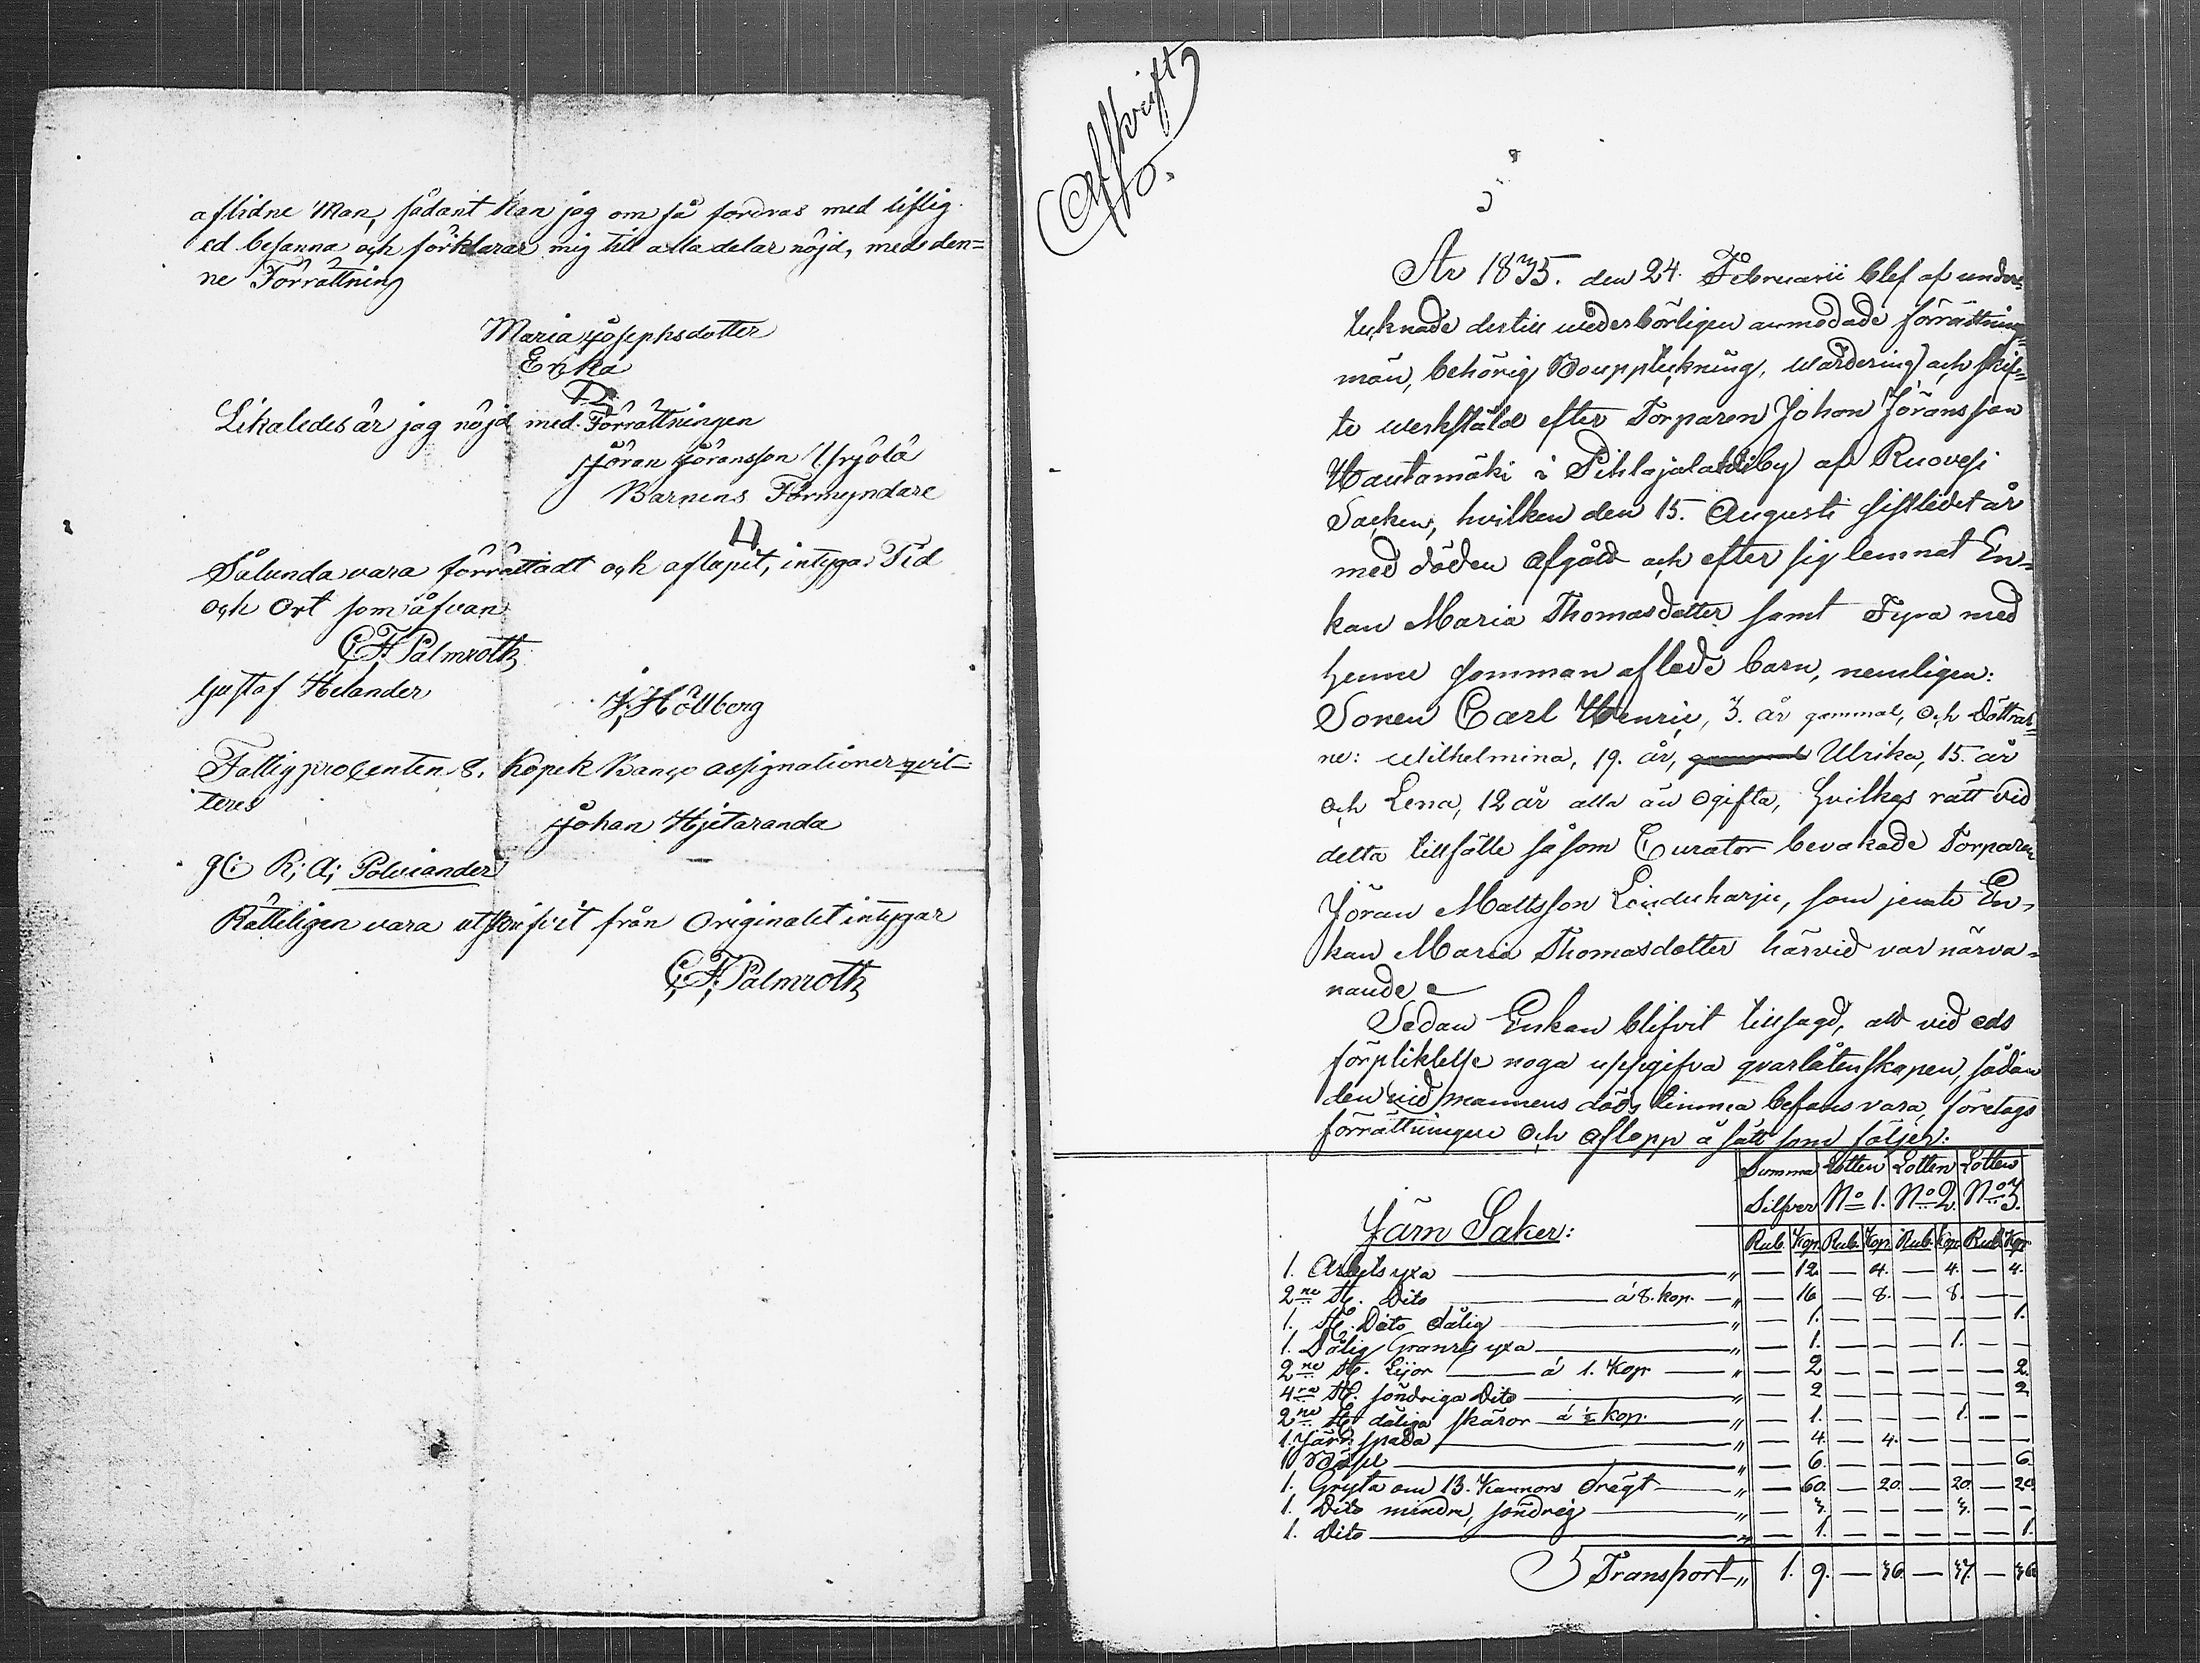 aflidne Man, sådant kan jag om så fordras med liflig
ed besanna och förklarar mig till alla delar nöjd, med den=
ne Förrättning
Maria Josephsdotter
Enka
Likaledes är jag nöjd med Förrättningen
Jöran Jöransson Yrjölä
Barnens Förmyndare
Sålunda vara förrättadt och aflupit, intyga Tid
och Ort som åfvan
C. F. Palmroth
Gustaf Helander
J. Höllberg
Fattigprocenten 8. Kopek Banco assignationer qvit=
teres
Johan Hjetaranda
R: A: Polviander
Rätteligen vara utskrifvit från Originalet intygar
C. F. Palmroth
Afskrift
År 1835. den 24. Februarii blef af under=
tecknade dertill wederbörligen anmodade förrättnings=
män, behörig Bouppteckning, wärdering och skif=
te werkstäld efter Torparen Johan Jöransson
Hautamäki i Pihlajalahti by af Ruovesi
Socken, hvilken den 15. Augusti sistledet år
med döden afgått och efter sig lemnat En=
kan Maria Thomasdotter samt Fyra med
henne samman aflade barn, nemligen:
Sonen Carl Henric, 3. år gammal, och döttrar=
ne: Wilhelmina, 19. år, Ulrika, 15. år
och Lena, 12 år alla än ogifta, hvilkas rätt vid
detta tillfälle såsom Curator bevakade Torparen
Jöran Mattsson, som jemte En=
kan Maria Thomasdotter härvid var närva=
rande.
Sedan Enkan blifvit tillsagd, att vid eds
förpliktelse noga uppgifva qvarlåtenskapen, sådan
den vid mannens döds timma befans vara, företogs
förrättningen och aflopp å sätt som följer:
Summa Lotten Lotten Lotten
Silfver No 1. No 2. No 3.
Järn Saker:
Rub. Kop. Rub. Kop. Rub. Kop. Rub. Kop.
1. Arbetsyxa — " — 12 — 4. — 4. — 4.
2ne St. Dito — á 8. kop. — " — 16 — 8. — 8. — —
1. St. Dito dålig — " — 1. — — — — — 1.
1. Dålig Granris yxa — " — 1. — — — 1. — —
2ne St. Lijor — á 1. Kop — " — 2 — — — — — 2.
4ra St. söndriga Dito — " — 2 — — — — — 2
2ne St. dåliga skäror — á ½ kop. — " — 1. — — — 1. — —
1. Järn spada — " — 4. — 4. — — — —
— " — 6. — — — — — 6.
1. Gryta om 13. Kannors drägt — " — 60. — 20. — 20. — 20.
1. Dito mindre, söndrig — " — 3. — — — 3. — —
1. Dito — " — 1. — — — — — 1.
Transport " 1. 9. — 36. — 37. — 36.